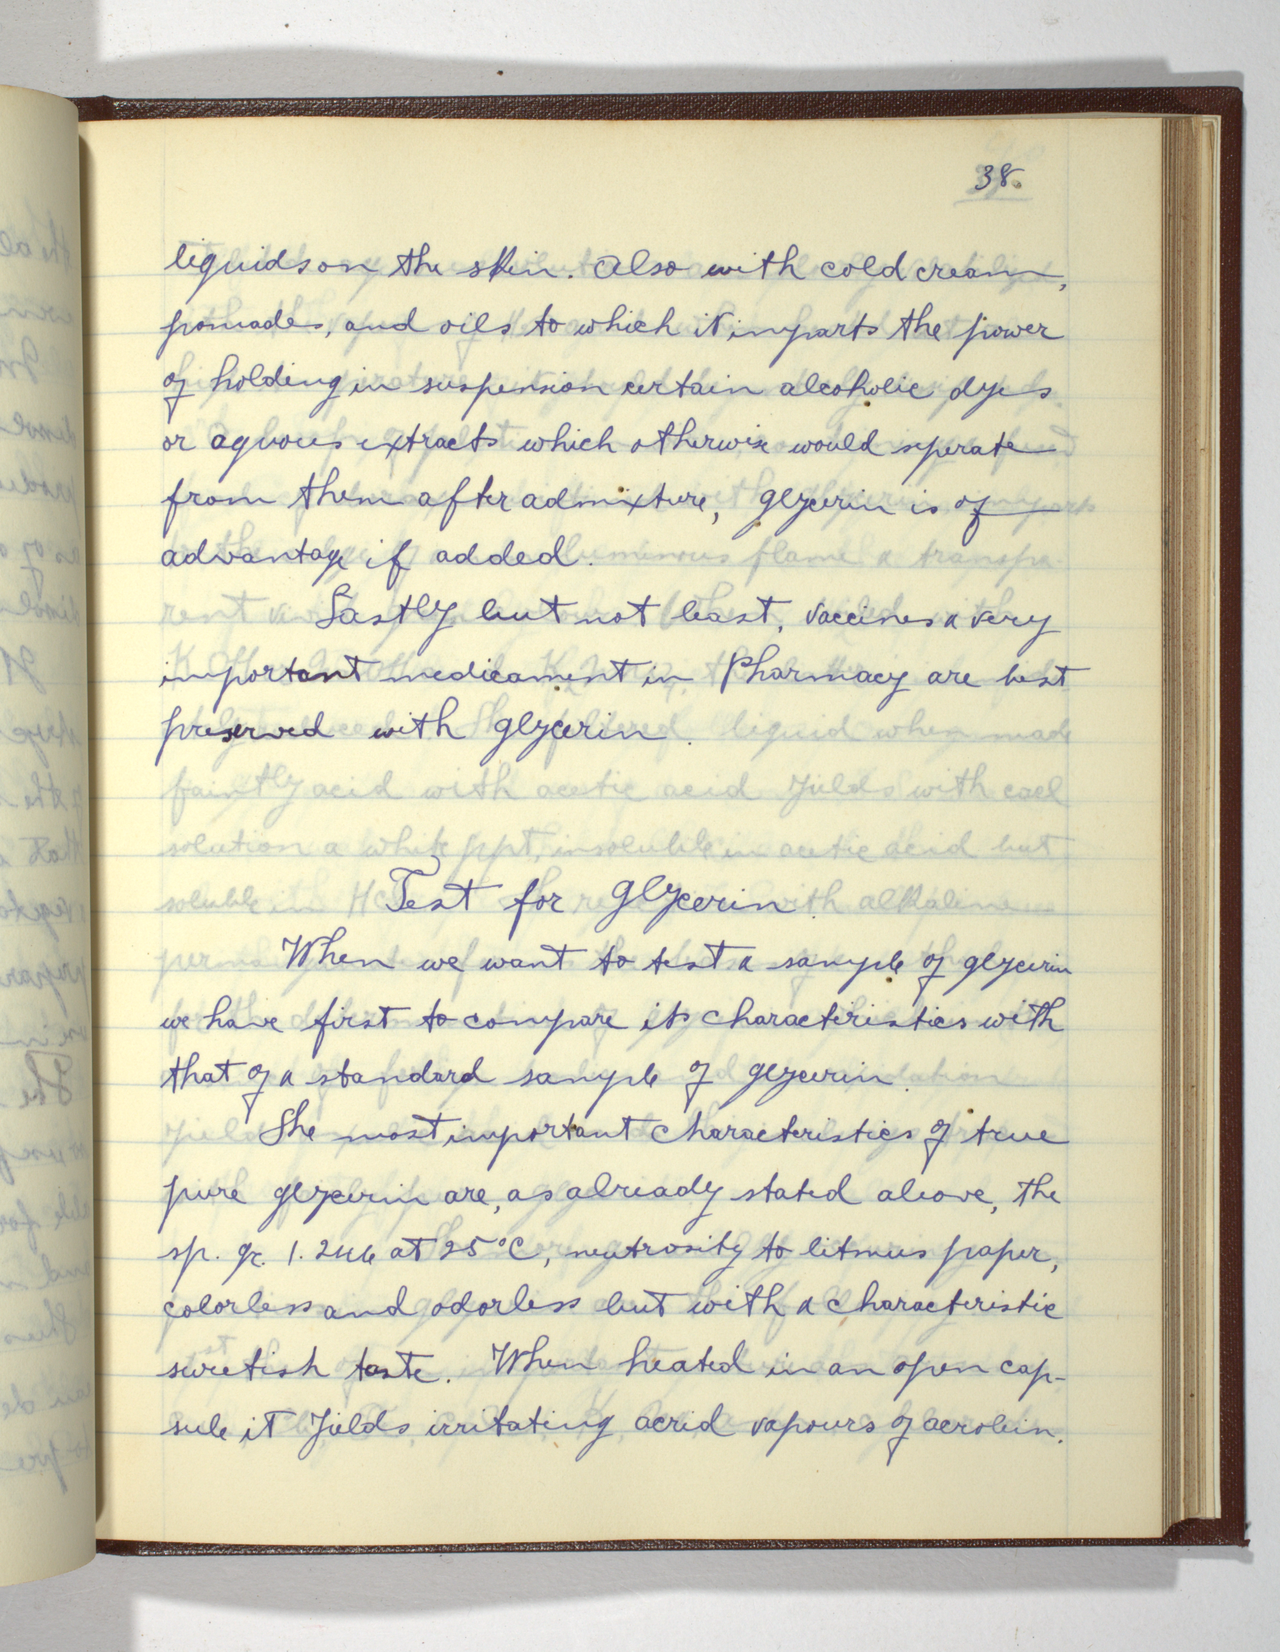 38.
liquids on the skin. Also with cold cream,
pomades, and oils to which it imparts the power
of holding in suspension certain alcoholic dyes
or aquous extracts which otherwise would seperate
from them after admixture, glycerin is of
advantage if added.
Lastly but not least, vaccines a very
important medicament in Pharmacy are best
preserved with glycerin.
Test for Glycerin.
When we want to test a sample of glycerin
we have first to compare its characteristics with
that of a standard sample of glycerin.
The most important characteristics of true
pure glycerin are, as already stated above, the
sp. gr. 1.246 at 25°C, neutrosity to litmus paper,
colorless and odorless but with a characteristic
sweetish taste. When heated in an open cap-
sule it yields irritating acrid vapours of acrolein.